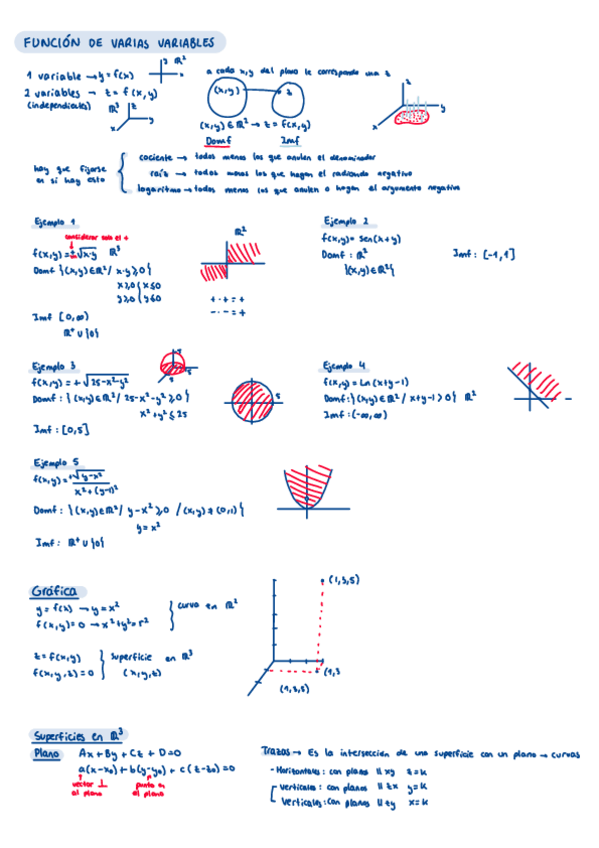 FUNCIÓN DE VARIAS VARIABLES
1 variable → y = f(x)
y ℝ²
x
a cada x,y del plano le corresponde una z
2 variables → z = f(x,y)
(independientes)
ℝ³ z
y
x
(x,y) z
(x,y) ∈ ℝ² → z = f(x,y)
Domf Imf
z
y
x
hay que fijarse
en si hay esto
cociente → todos menos los que anulen el denominador
raíz → todos menos los que hagan el radicando negativo
logaritmo → todos menos los que anulen o hagan el argumento negativo
Ejemplo 1
considerar solo el +
f(x,y) = ±√x·y ℝ³
Domf {(x,y) ∈ ℝ² / x·y ≥ 0}
x ≥ 0 { x ≤ 0
y ≥ 0 { y ≤ 0
Imf [0,∞)
ℝ⁺ ∪ {0}
ℝ²
+ · + = +
- · - = +
Ejemplo 2
f(x,y) = sen(x+y)
Domf : ℝ² Imf : [-1,1]
{(x,y) ∈ ℝ²}
Ejemplo 3
f(x,y) = +√25-x²-y²
Domf : {(x,y) ∈ ℝ² / 25-x²-y² ≥ 0}
x² + y² ≤ 25
Imf : [0,5]
5
5
5
5
Ejemplo 4
f(x,y) = Ln(x+y-1)
Domf : {(x,y) ∈ ℝ² / x+y-1 > 0} ℝ²
Imf : (-∞,∞)
Ejemplo 5
f(x,y) = +√y-x²
x² + (y-1)²
Domf : {(x,y) ∈ ℝ² / y-x² ≥ 0 / (x,y) ≠ (0,1)}
y = x²
Imf : ℝ⁺ ∪ {0}
Gráfica
y = f(x) → y = x²
f(x,y) = 0 → x² + y² = r²
curva en ℝ²
z = f(x,y)
f(x,y,z) = 0
superficie en ℝ³
(x,y,z)
(1,3,5)
(1,3
(1,3,5)
Superficies en ℝ³
Plano Ax + By + Cz + D = 0
a(x-x₀) + b(y-y₀) + c(z-z₀) = 0
vector ⊥
al plano
punto en
el plano
Trazas → Es la intersección de una superficie con un plano → curvas
- Horizontales : con planos || xy z = k
Verticales : con planos || zx y = k
Verticales : con planos || zy x = k